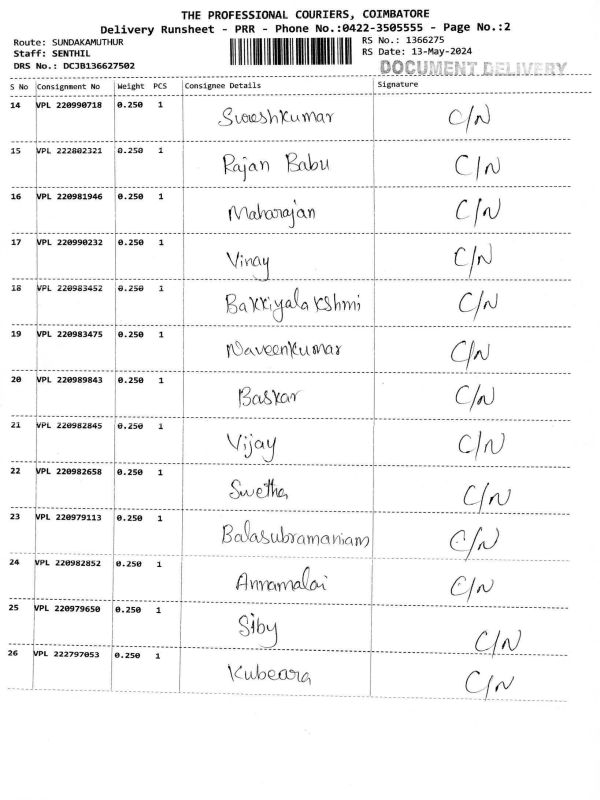 THE PROFESSIONAL COURIERS, COIMBATORE
Delivery Runsheet - PRR - Phone No.:0422-3505555 - Page No.:2
Route: SUNDAKAMUTHUR RS No.: 1366275
Staff: SENTHIL RS Date: 13-May-2024
DRS No.: DCJB136627502 DOCUMENT DELIVERY
S No Consignment No Weight PCS Consignee Details Signature
14 VPL 220990718 0.250 1 Sureshkumar C/N
15 VPL 222802321 0.250 1 Rajan Babu C/N
16 VPL 220981946 0.250 1 Maharajan C/N
17 VPL 220990232 0.250 1 Vinay C/N
18 VPL 220983452 0.250 1 Bakkiyalakshmi C/N
19 VPL 220983475 0.250 1 Naveenkumar C/N
20 VPL 220989843 0.250 1 Baskar C/N
21 VPL 220982845 0.250 1 Vijay C/N
22 VPL 220982658 0.250 1 Swetha C/N
23 VPL 220979113 0.250 1 Balasubramaniam C/N
24 VPL 220982852 0.250 1 Annamalai C/N
25 VPL 220979650 0.250 1 Siby C/N
26 VPL 222797053 0.250 1 Kubeara C/N